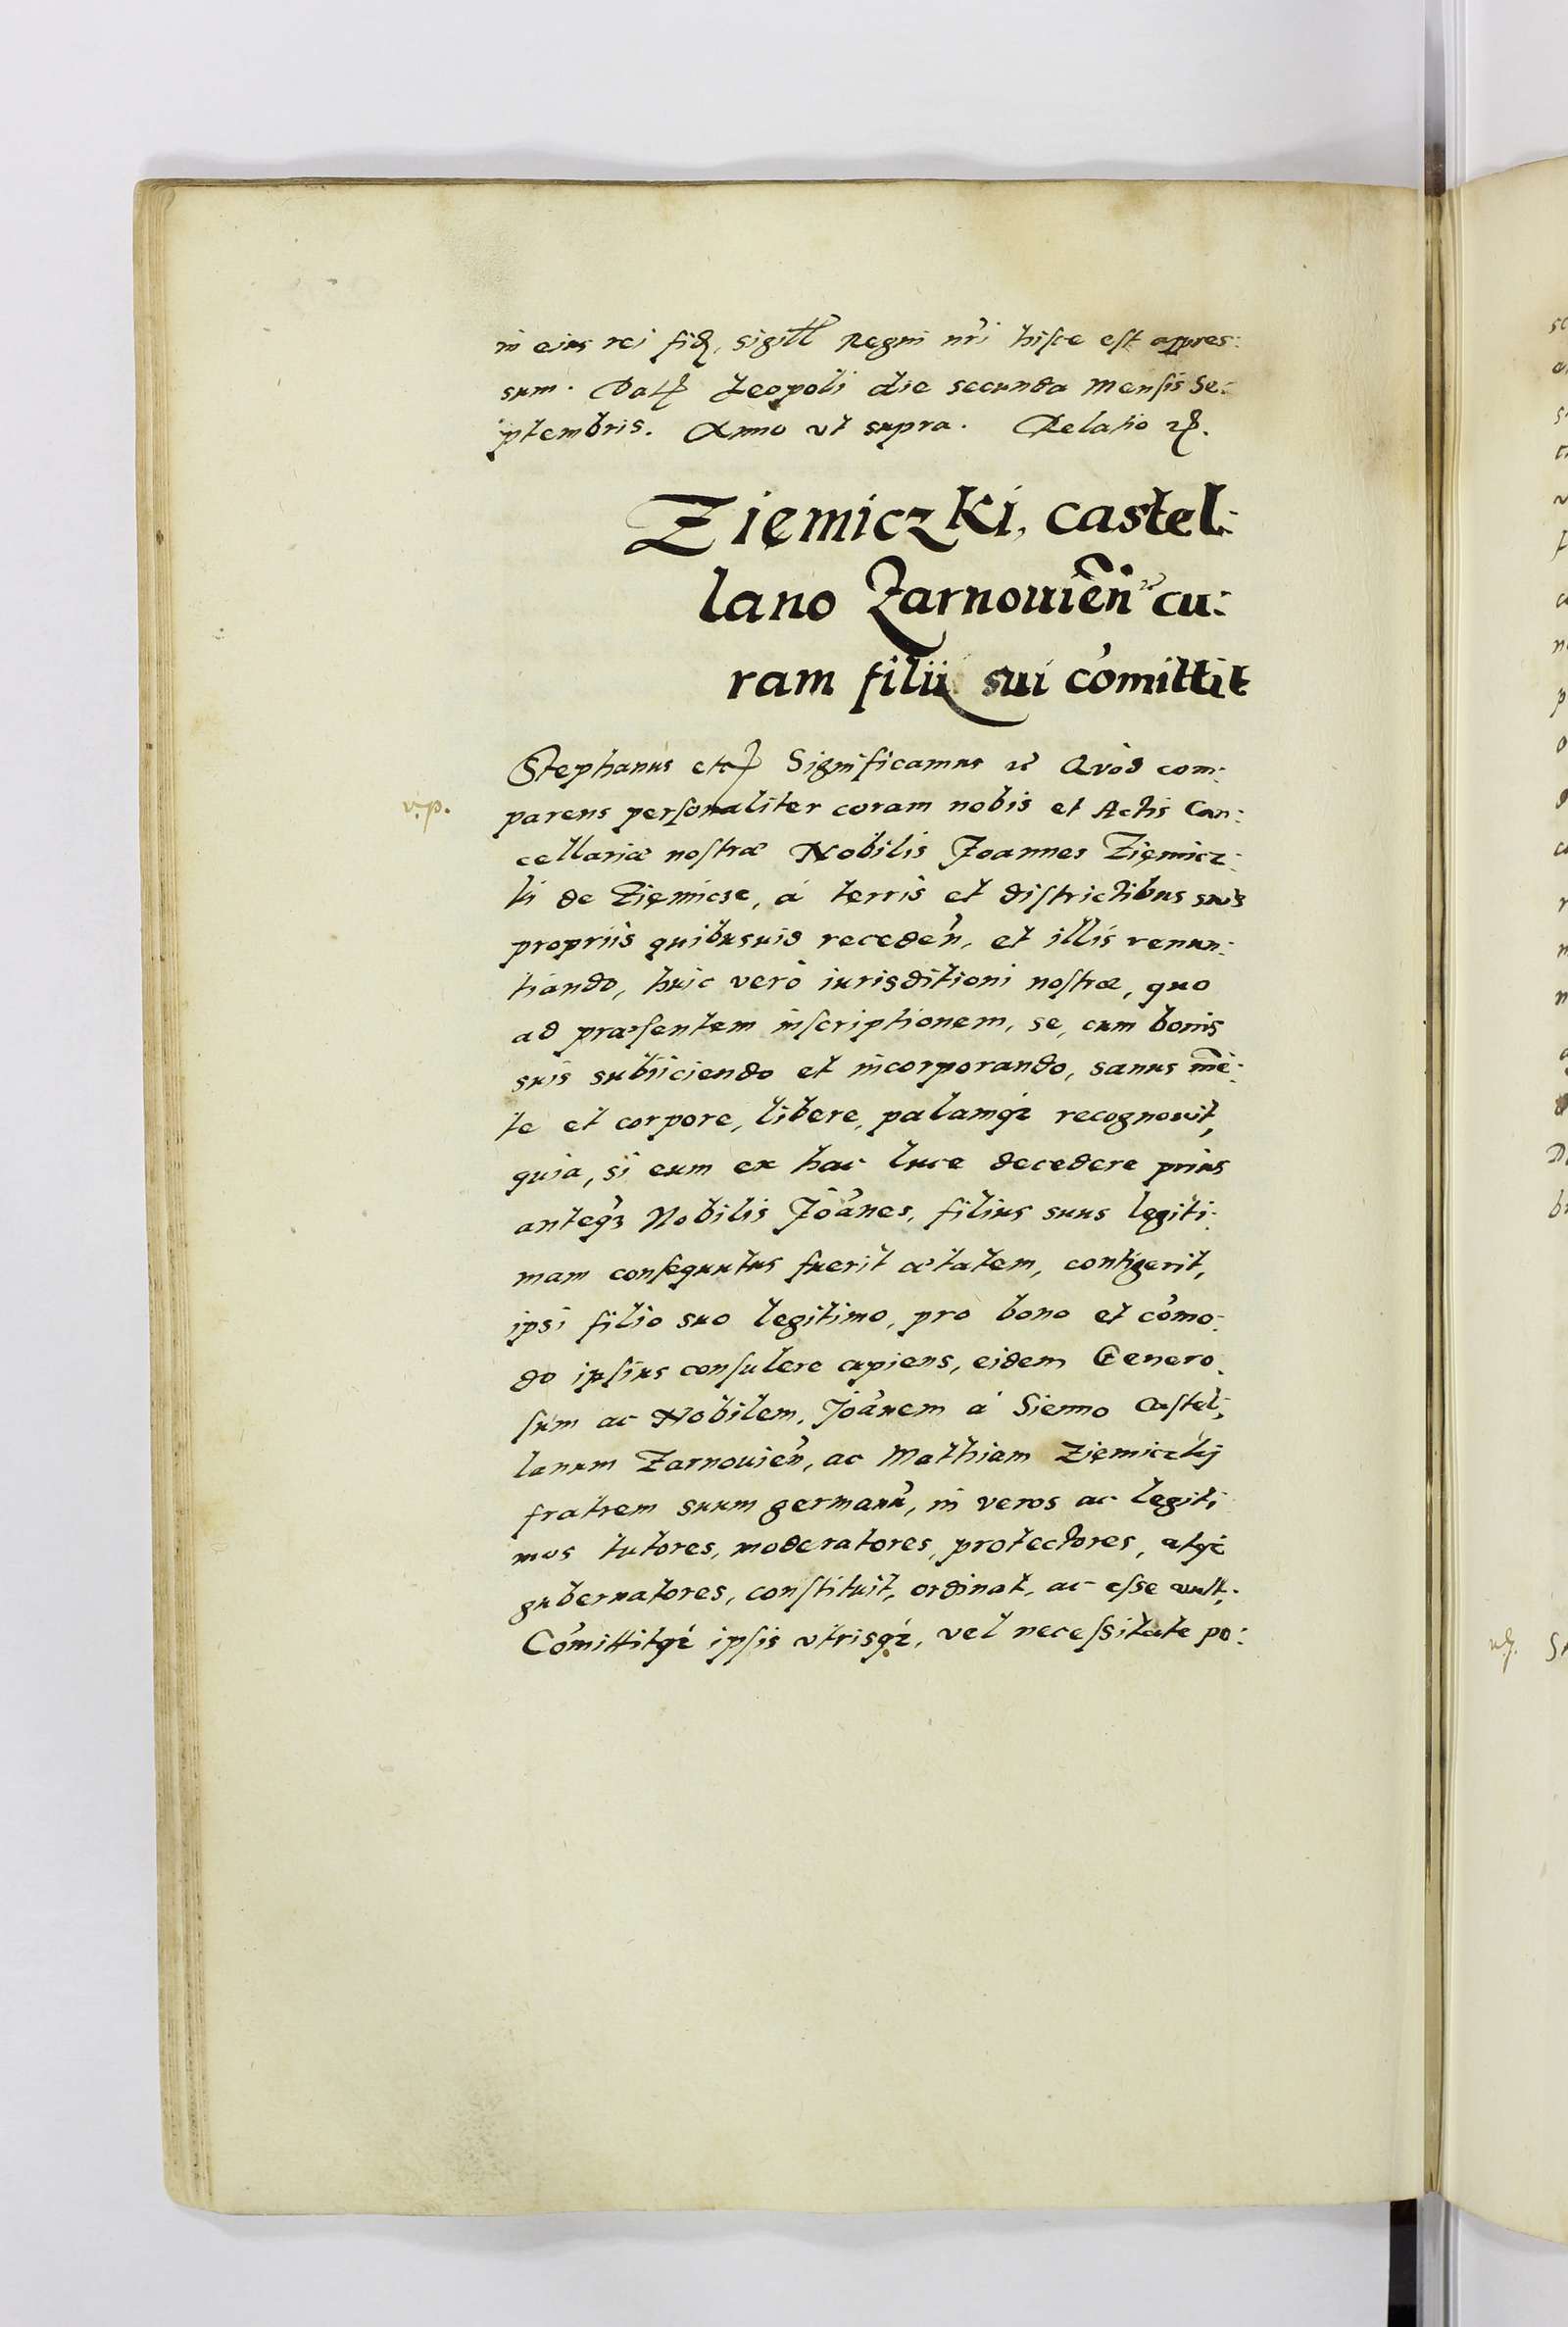 in eius rei fid, sigill Regni nri hisce est appres:
sum. Dat Leopoli die secunda Mensis Se:
ptembris. Anno ut supra. Relatio
Zięmiczki, castel:
lano Zarnouień cu:
ram filii sui cómittit
Stephanus etc Significamus Quód com:
v.p.
parens personaliter coram nobis et Actis Can:
cellariæ nostræ Nobilis Joannes Zięmicz:
ki de Zięmicze, á terris et districtibus suis
propriis quibusuis recedeń, et illis renun:
tiando, huic veró iurisditioni nostræ, quo
ad præsentem inscriptionem, se, cum bonis
suis subiiciendo et incorporando, sanus mē:
te et corpore, libere, palamq3 recognouit,
quia, si eum ex hac luce decedere prius
anteq3 Nobilis Joánes, filius suus legiti:
mam consequutus fuerit ætatem, contigerit,
ipsi filio suo legitimo, pro bono et cómo:
do ipsius consulere cupiens, eidem Genero:
sum ac Nobilem, Joánem á Sienno Castel:
lanum Zarnouień, ac Mathiam Zięmiczkj
fratrem suum germanú, in veros ac legiti
mos tutores, moderatores, protectores, atq3
gubernatores, constituit, ordinat, ac esse vult.
Cómittitq3 ipsis vtrisq3, vel necessitate po: